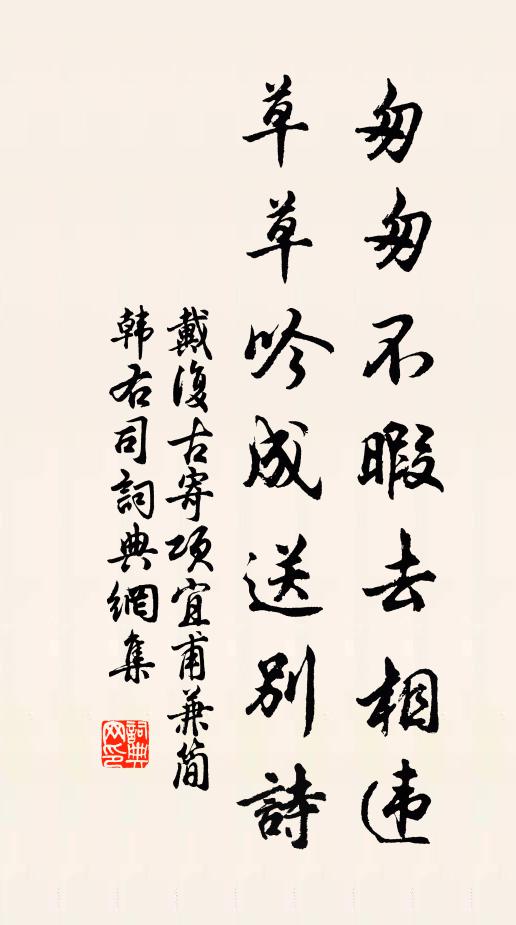 匆匆不暇去相违
草草吟成送别詩
戴復古寄項宜甫兼简
韩右司詞典網集
詞典
网印